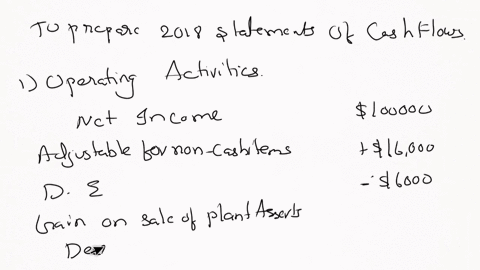 To prepare 2018 statements of Cash Flows.
1) Operating Activities.
Net Income $100000
Adjustable for non-Cash items + $16,000
D. E - $6000
Gain on sale of plant Asserts
De